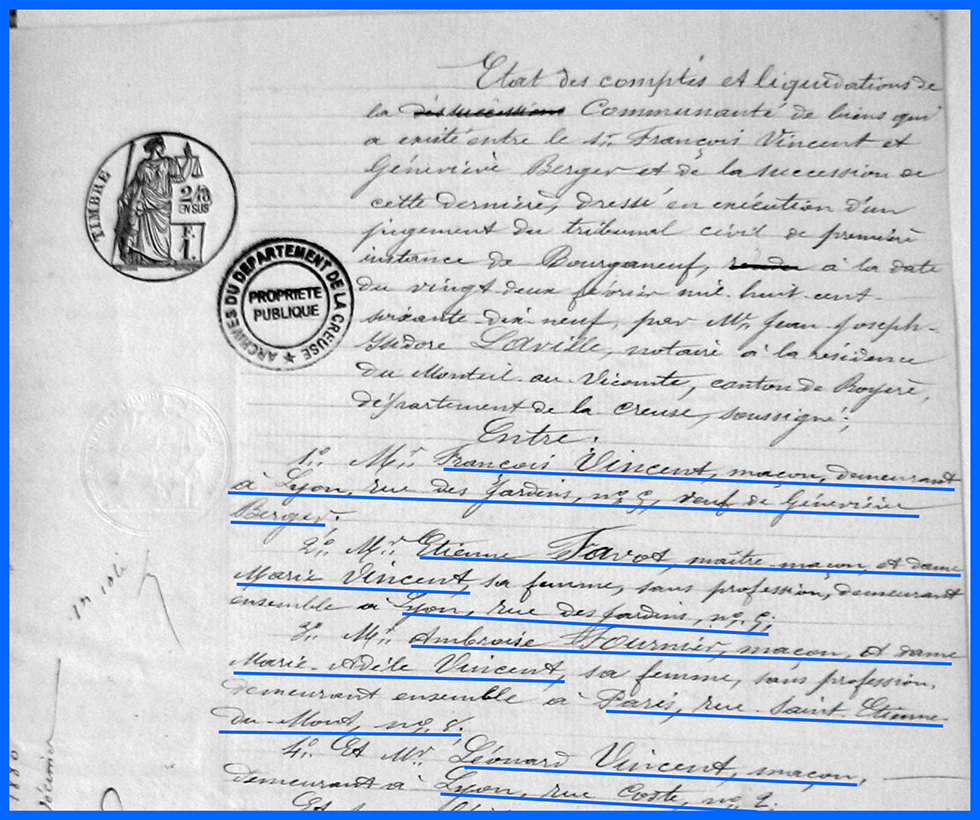 Etat des comptes et liquidations de
la des successions Communauté de biens qui
a existé entre le Sr. François Vincent et
Géneviève Berger et de la succession de
cette dernière, dressé en exécution d'un
jugement du tribunal civil de première
instance de Bourganeuf, rendu à la date
du vingt deux février mil huit cent
soixante-dix-neuf, par Me. Jean-Joseph-
Isidore Laville, notaire à la résidence
du Monteil-au-Vicomte, canton de Royère,
département de la Creuse, soussigné;
Entre:
1o. Mr. François Vincent, maçon, demeurant
à Lyon, rue des Jardins, no. 9, veuf de Géneviève
Berger.
2o. Mr. Etienne Favot, maître-maçon, et dame
Marie Vincent, sa femme, sans profession, demeurant
ensemble à Lyon, rue des jardins, no. 9;
3o. Mr. Ambroise Fournier, maçon, et dame
Marie-Adèle Vincent, sa femme, sans profession,
demeurant ensemble à Paris, rue Saint-Etienne
du-Mont, no. 8.
4o. Et Mr. Léonard Vincent, maçon,
demeurant à Lyon, rue Coste, no. 2.
TIMBRE
2/10
EN SUS
F.
1.
ARCHIVES DU DEPARTEMENT DE LA CREUSE
PROPRIETE
PUBLIQUE
1880
décembre